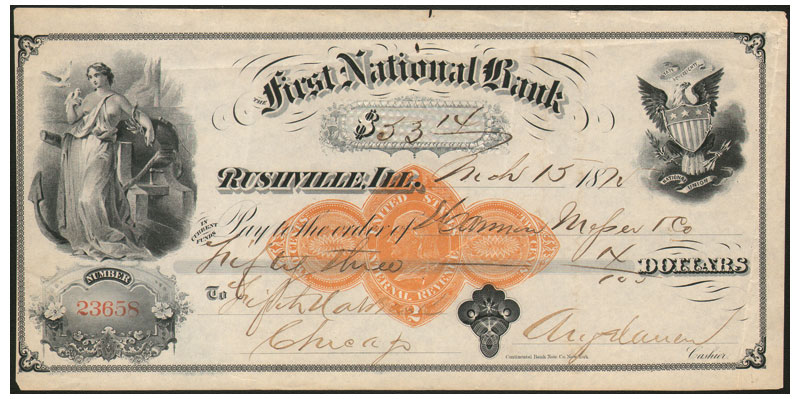 THE First National Bank
$53 14
STATE SOVEREIGNTY
NATIONAL UNION
RUSHVILLE, ILL. Mch 15 1872
IN CURRENT FUNDS
Pay to the order of Messer & Co
Fifty three 14/100 DOLLARS
UNITED STATES
INTERNAL REVENUE
2
NUMBER
23658
To Fifth Natl
Chicago
Continental Bank Note Co. New York
Cashier.